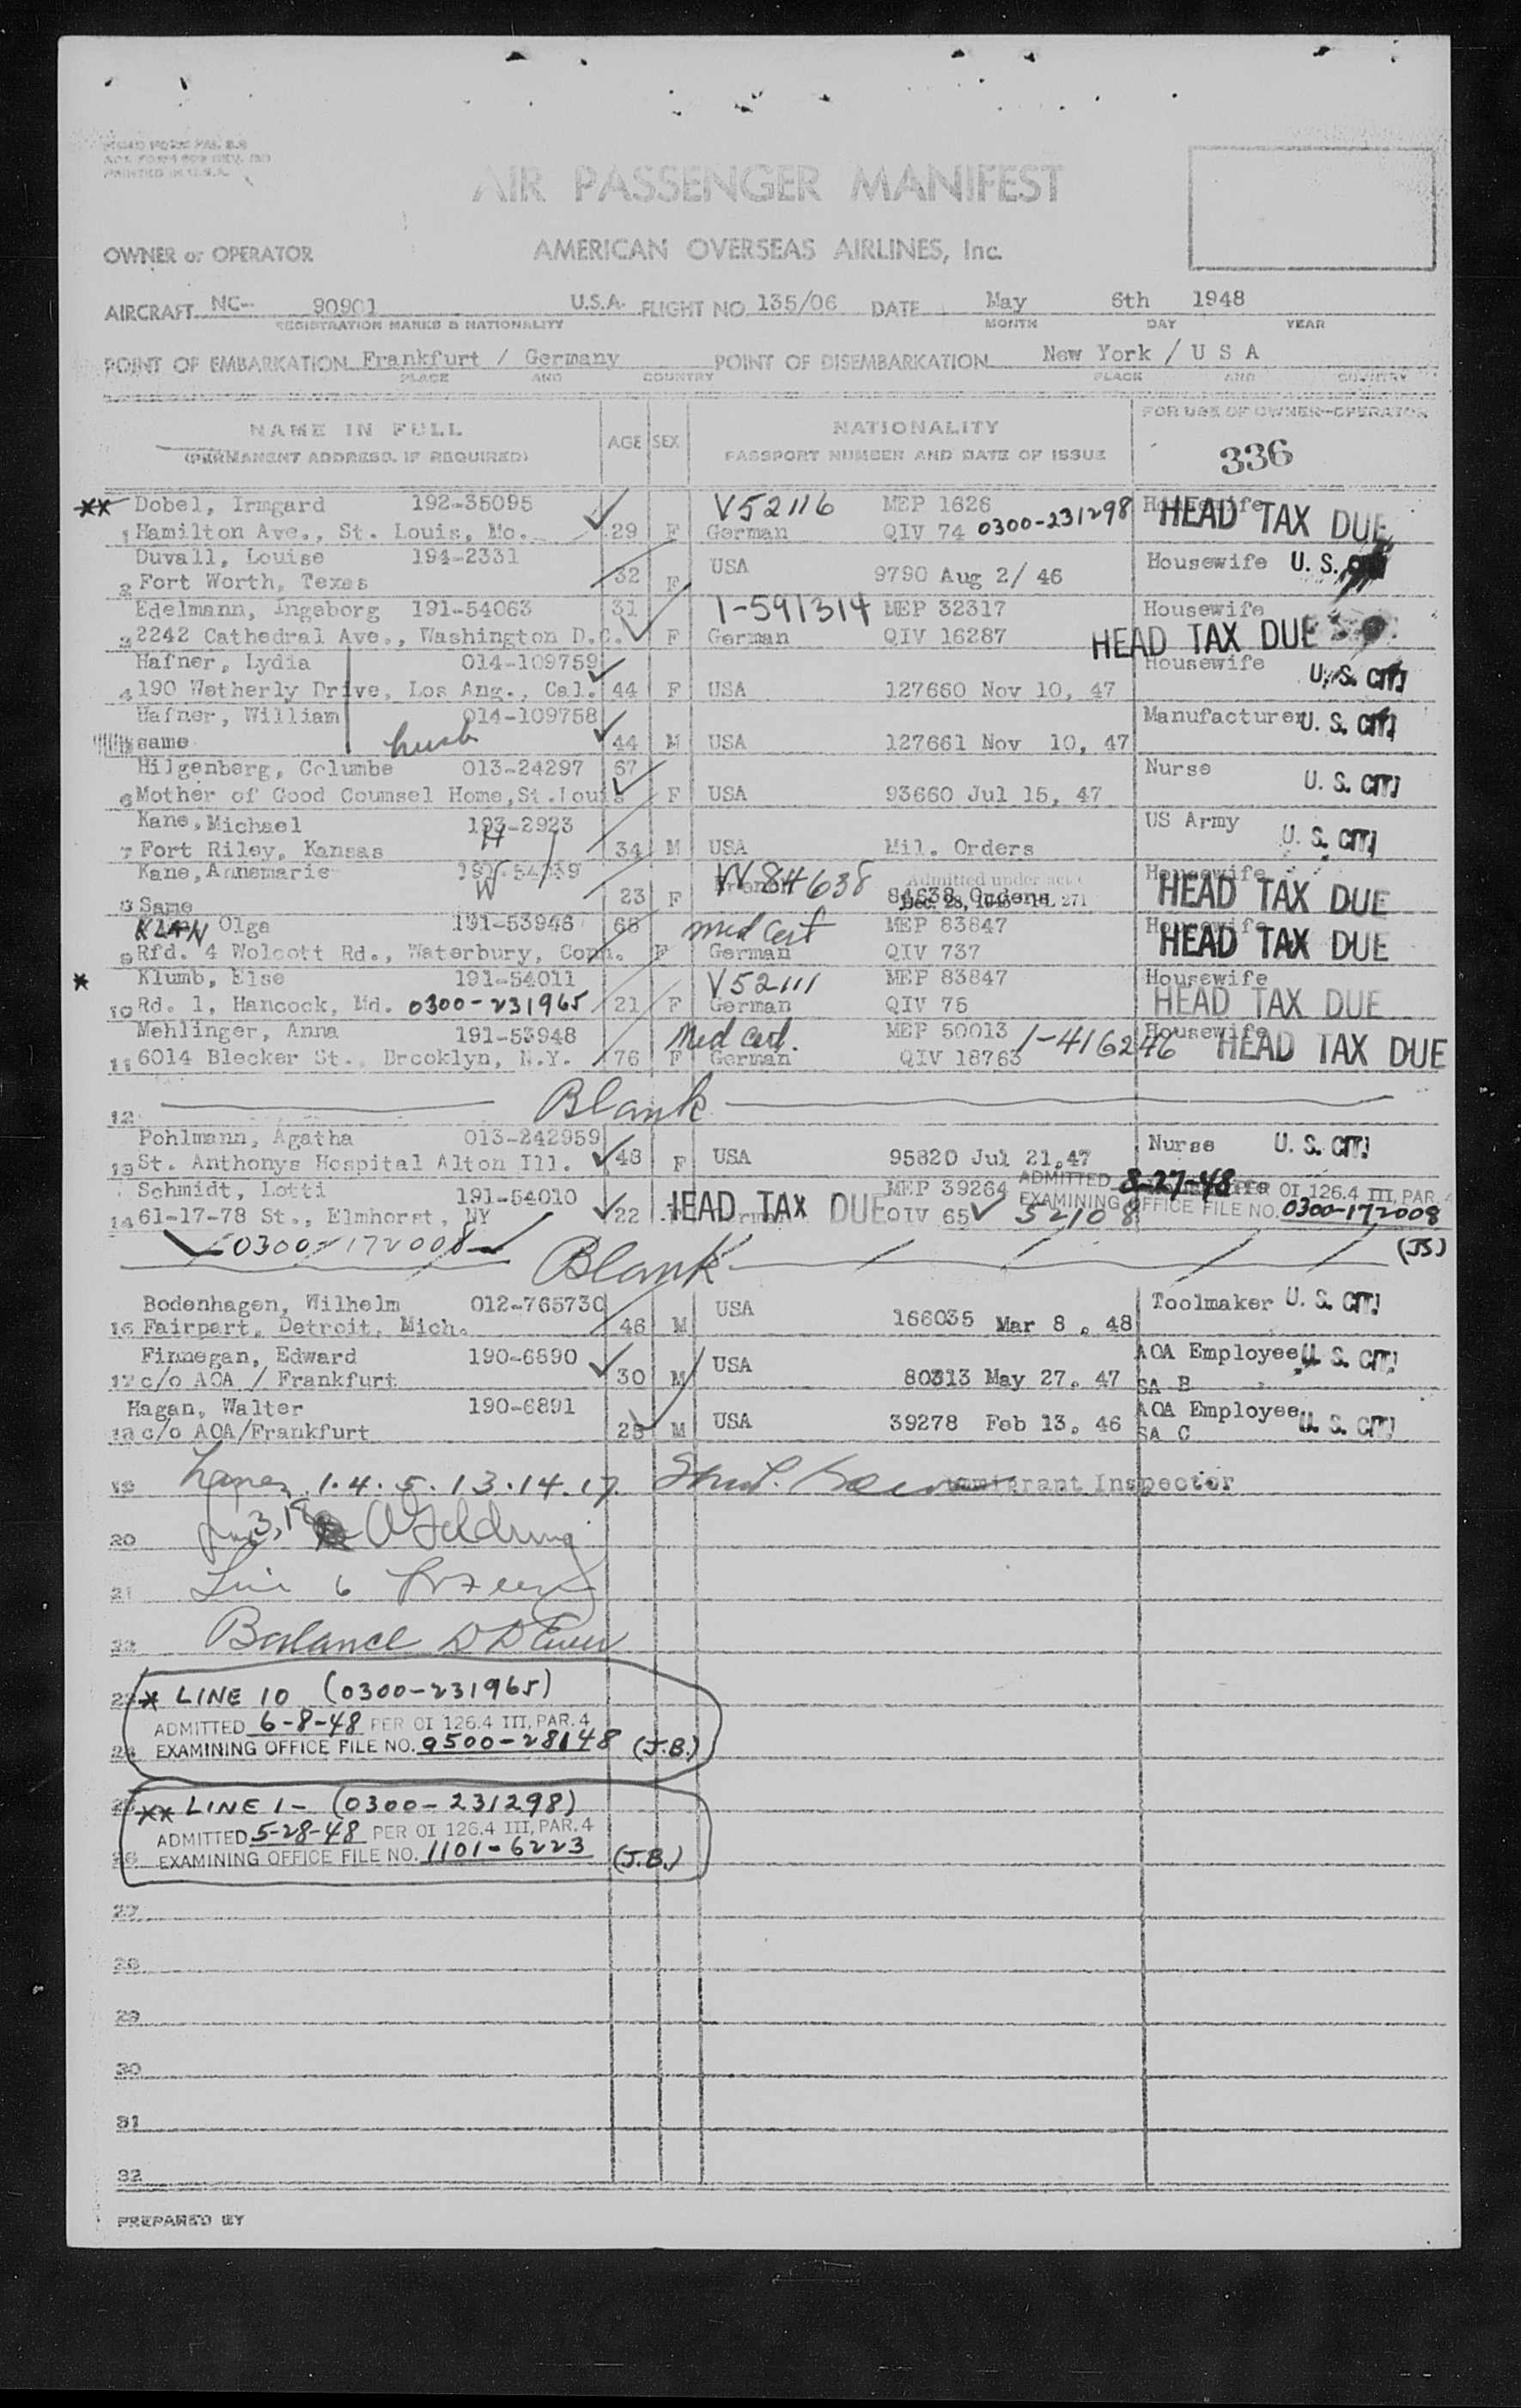 AIR PASSENGER MANIFEST
OWNER or OPERATOR AMERICAN OVERSEAS AIRLINES, Inc.
AIRCRAFT NC- 90901 U.S.A. FLIGHT NO. 135/06 DATE May 6th 1948
REGISTRATION MARKS & NATIONALITY MONTH DAY YEAR
POINT OF EMBARKATION Frankfurt / Germany POINT OF DISEMBARKATION New York / U S A
PLACE AND COUNTRY PLACE AND COUNTRY
NAME IN FULL AGE SEX NATIONALITY FOR USE OF OWNER-OPERATOR
(PERMANENT ADDRESS, IF REQUIRED) PASSPORT NUMBER AND DATE OF ISSUE 336
** Dobel, Irmgard 192-35095 V52116 MEP 1626 Housewife
1 Hamilton Ave., St. Louis, Mo. 29 F German QIV 74 0300-231298 HEAD TAX DUE
Duvall, Louise 194-2331 USA Housewife U. S.
2 Fort Worth, Texas 32 F 9790 Aug 2/ 46
Edelmann, Ingeborg 191-54063 31 1-591314 MEP 32317 Housewife
3 2242 Cathedral Ave., Washington D.C. F German QIV 16287 HEAD TAX DUE
Hafner, Lydia 014-109759 Housewife U. S. CIT
4 190 Wetherly Drive, Los Ang., Cal. 44 F USA 127660 Nov 10, 47
Hafner, William 014-109758 Manufacturer U. S. CIT
same husb 44 M USA 127661 Nov 10, 47
Hilgenberg, Columbe 013-24297 67 Nurse
6 Mother of Good Counsel Home, St. Louis F USA 93660 Jul 15, 47 U. S. CIT
Kane, Michael 193-2923 US Army
7 Fort Riley, Kansas H 34 M USA Mil. Orders U. S. CIT
Kane, Annemarie W W 84638 Admitted under act Housewife
8 Same 23 F Dec. 28, 1945 271 HEAD TAX DUE
KLAN Olga 191-53946 68 med cert MEP 83847 Housewife
9 Rfd. 4 Wolcott Rd., Waterbury, Conn. F German QIV 737 HEAD TAX DUE
* Klumb, Else 191-54011 V52111 MEP 83847 Housewife
10 Rd. 1, Hancock, Md. 0300-231965 21 F German QIV 75 HEAD TAX DUE
Mehlinger, Anna 191-53948 Med Cert. MEP 50013 1-416246 Housewife
11 6014 Bleecker St., Brooklyn, N.Y. 76 F German QIV 18763 HEAD TAX DUE
12 Blank
Pohlmann, Agatha 013-242959 Nurse U. S. CIT
13 St. Anthonys Hospital Alton Ill. 48 F USA 95820 Jul 21, 47
Schmidt, Lotti 191-54010 MEP 39264 ADMITTED 8-27-48 PER OI 126.4 III, PAR. 4
14 61-17-78 St., Elmhorst, NY 22 HEAD TAX DUE QIV 65 52108 EXAMINING OFFICE FILE NO. 0300-172008
0300-172008 (JS)
Blank
Bodenhagen, Wilhelm 012-765730 USA Toolmaker U. S. CIT
16 Fairpart, Detroit, Mich. 46 M 166035 Mar 8, 48
Finnegan, Edward 190-6890 USA AOA Employee U. S. CIT
17 c/o AOA / Frankfurt 30 M 80313 May 27, 47 SA B
Hagan, Walter 190-6891 USA AOA Employee U. S. CIT
18 c/o AOA/Frankfurt 25 M 39278 Feb 13, 46 SA C
19 1. 4. 5. 13. 14. 17. Immigrant Inspector
20 3, 18
21 6
22 Balance
23 * LINE 10 (0300-231965)
ADMITTED 6-8-48 PER OI 126.4 III, PAR. 4
24 EXAMINING OFFICE FILE NO. 9500-28148 (J.B.)
25 ** LINE 1- (0300-231298)
ADMITTED 5-28-48 PER OI 126.4 III, PAR. 4
26 EXAMINING OFFICE FILE NO. 1101-6223 (J.B.)
27
28
29
30
31
32
PREPARED BY